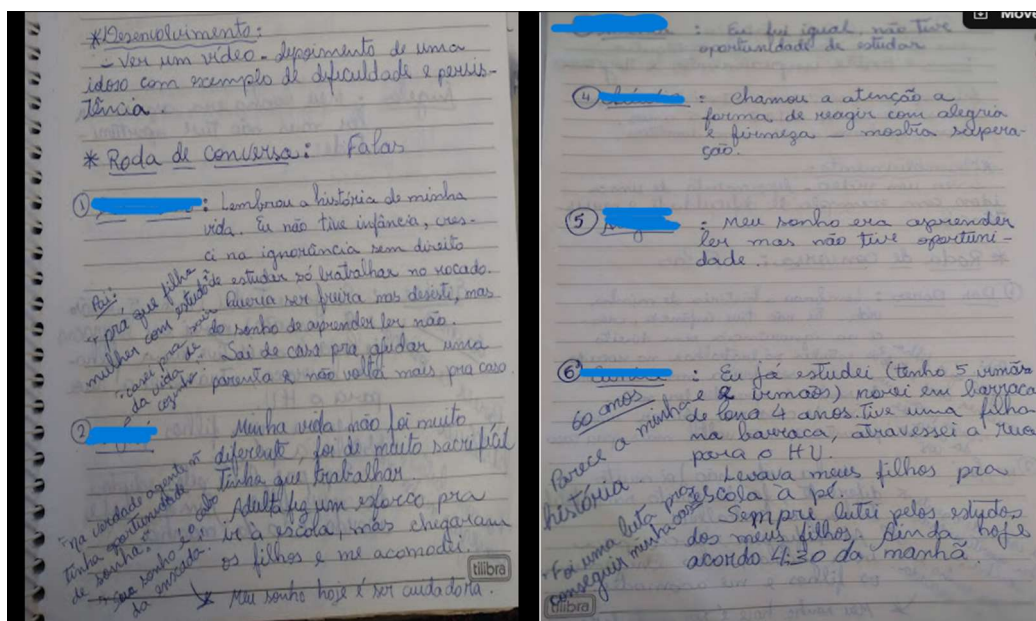 *Desenvolvimento:
- Ver um vídeo - depoimento de uma
idosa com exemplo de dificuldade e persis-
tência.
* Roda de conversa: Falas
①
: Lembrou a história de minha
vida. Eu não tive infância, cres-
ci na ignorância sem direito
de estudar só trabalhar no roçado.
Queria ser freira mas desisti, mas
do sonho de aprender ler não.
Sai de casa pra ajudar uma
parenta e não voltei mais pra casa.
Pai:
"pra que filha
mulher com estudo"
· casei pra sair
da vida de
②
Minha vida não foi muito
diferente foi de muito sacrifício
Tinha que trabalhar
Adulta fiz um esforço pra
ir à escola, mas chegaram
os filhos e me acomodei.
Meu sonho hoje é ser cuidadora.
"Na verdade a gente ñ
tinha oportunidade
de sonhar."
sonho é o cabo
da enxada.
tilibra
: Eu fui igual, não tive
oportunidade de estudar
④
: Chamou a atenção a
forma de reagir com alegria
e firmeza - mostra supera-
ção.
⑤
: Meu sonho era aprender
ler mas não tive oportuni-
dade.
⑥
: Eu já estudei (tenho 5 irmãs
e 2 irmãos) morei em barraca
de lona 4 anos. Tive uma filha
na barraca, atravessei a rua
para o HU.
Levava meus filhos pra
escola a pé.
Sempre lutei pelos estudos
dos meus filhos. Ainda hoje
acordo 4:30 da manhã.
60 anos
Parece a minha
história
· Foi uma luta pra
conseguir minha casa
tilibra
Move